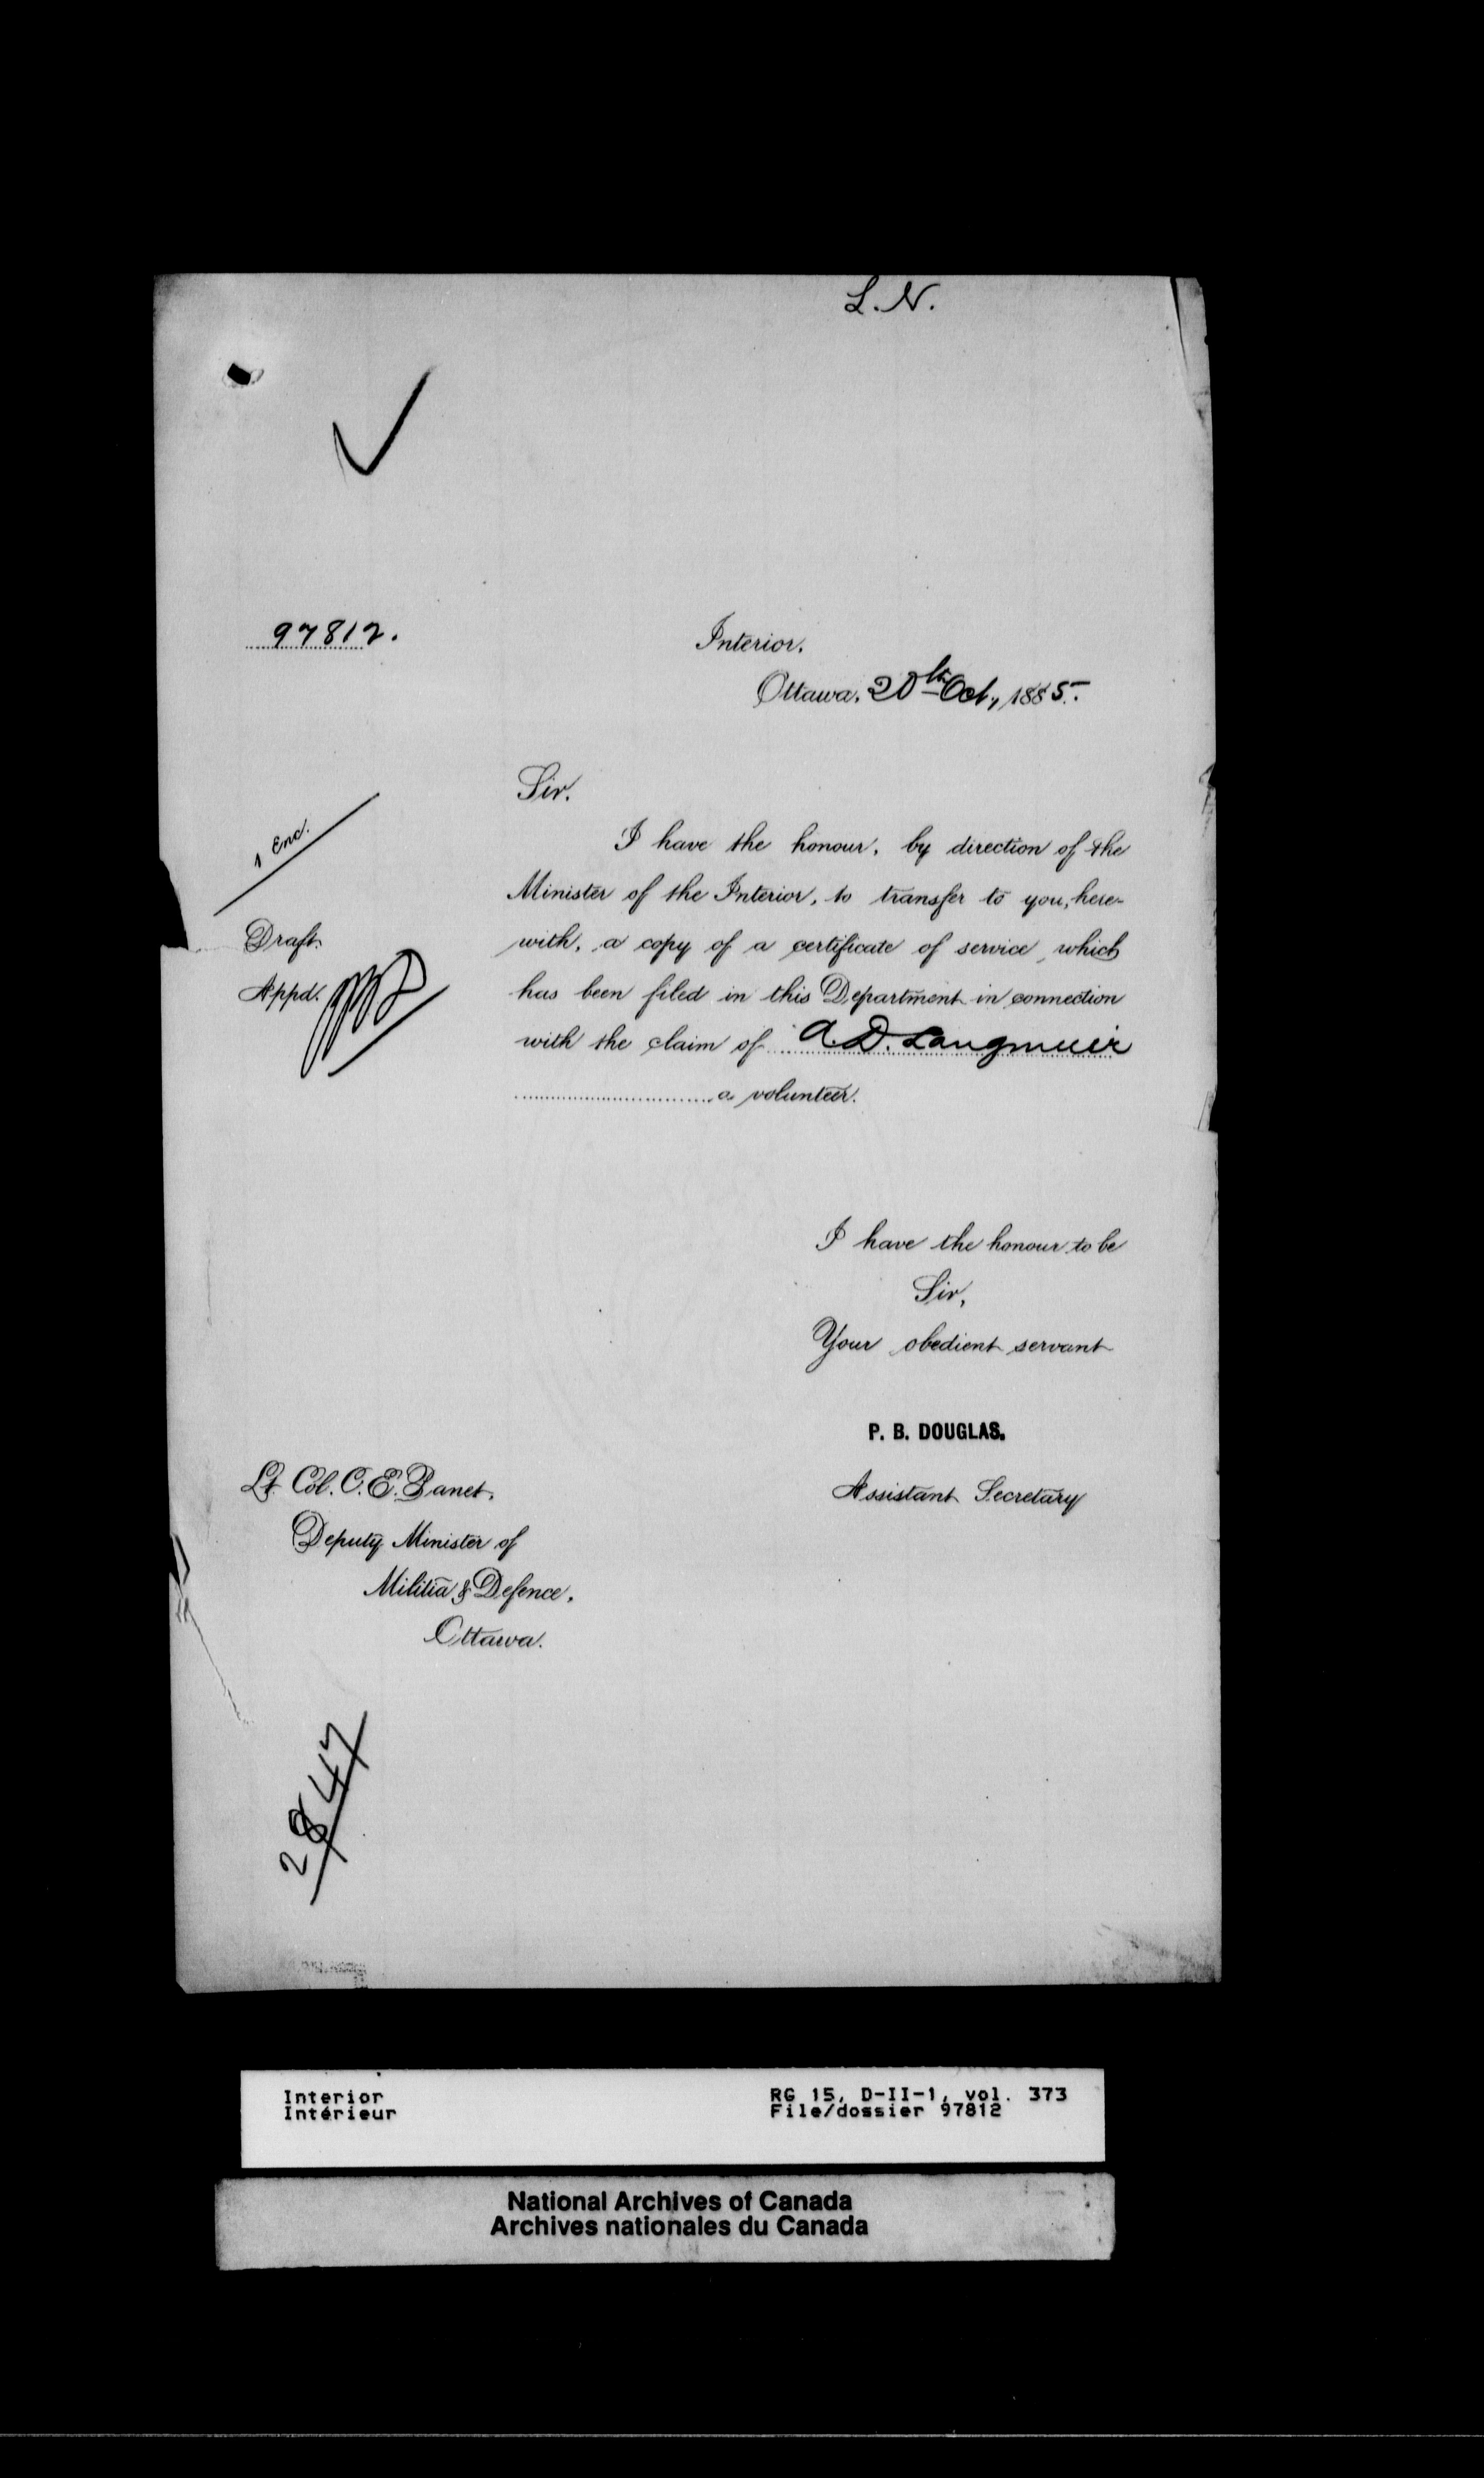 L. N.
97812.
Interior.
Ottawa, 20th Oct., 1885.
Sir.
1 Enc.
I have the honour, by direction of the
Minister of the Interior, to transfer to you, here-
with, a copy of a certificate of service, which
has been filed in this Department in connection
with the claim of A. D. Langmuir
a volunteer.
Draft.
Appd.
I have the honour to be
Sir,
Your obedient servant
P. B. DOUGLAS.
Assistant Secretary
Lt. Col. C. E. Panet,
Deputy Minister of
Militia & Defence,
Ottawa.
2847
Interior
Intérieur
RG 15, D-II-1, vol. 373
File/dossier 97812
National Archives of Canada
Archives nationales du Canada